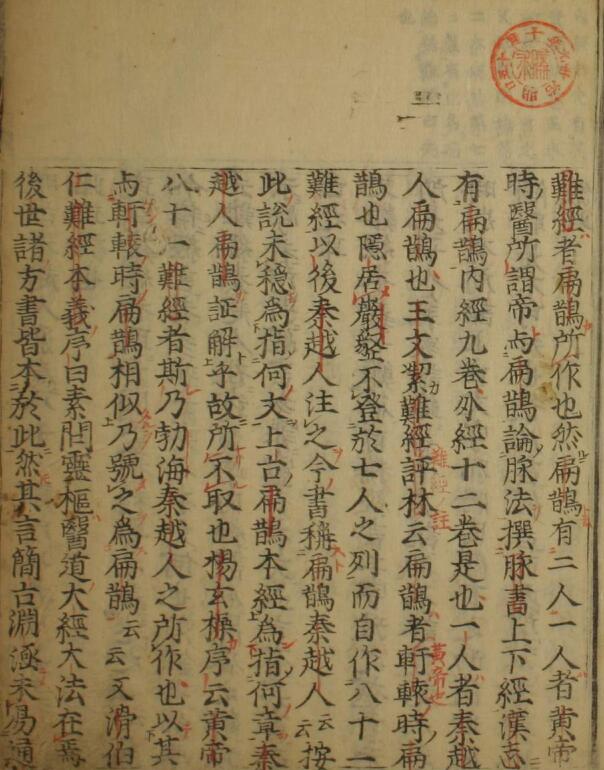 難經者扁鵲所作也然扁鵲有二人一人者黄帝
時醫所謂帝与扁鵲論脉法撰脉書上下經漢志
有扁鵲内經九卷外經十二卷是也一人者秦越
人扁鵲也王文絜難經評林云扁鵲者軒轅時扁
鵲也隱居巖嶽不登於七人之列而自作八十一
難經以後秦越人注之今書稱扁鵲秦越人云云按
此説未穏為指何文上古扁鵲本經為指何章秦
越人扁鵲証解乎故所不取也楊玄操序云黄帝
八十一難經者斯乃勃海秦越人之所作也以其
与軒轅時扁鵲相似乃號之為扁鵲云云又滑伯
仁難經本義序曰素問靈樞醫道大經大法在焉
後世諸方書皆本於此然其言簡古淵涵未易通